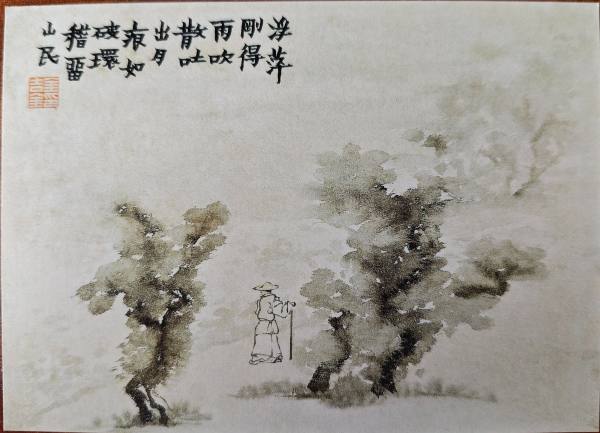 浮萍
剛得
雨吹
散吐
出月
痕如
破環
稽留
山民